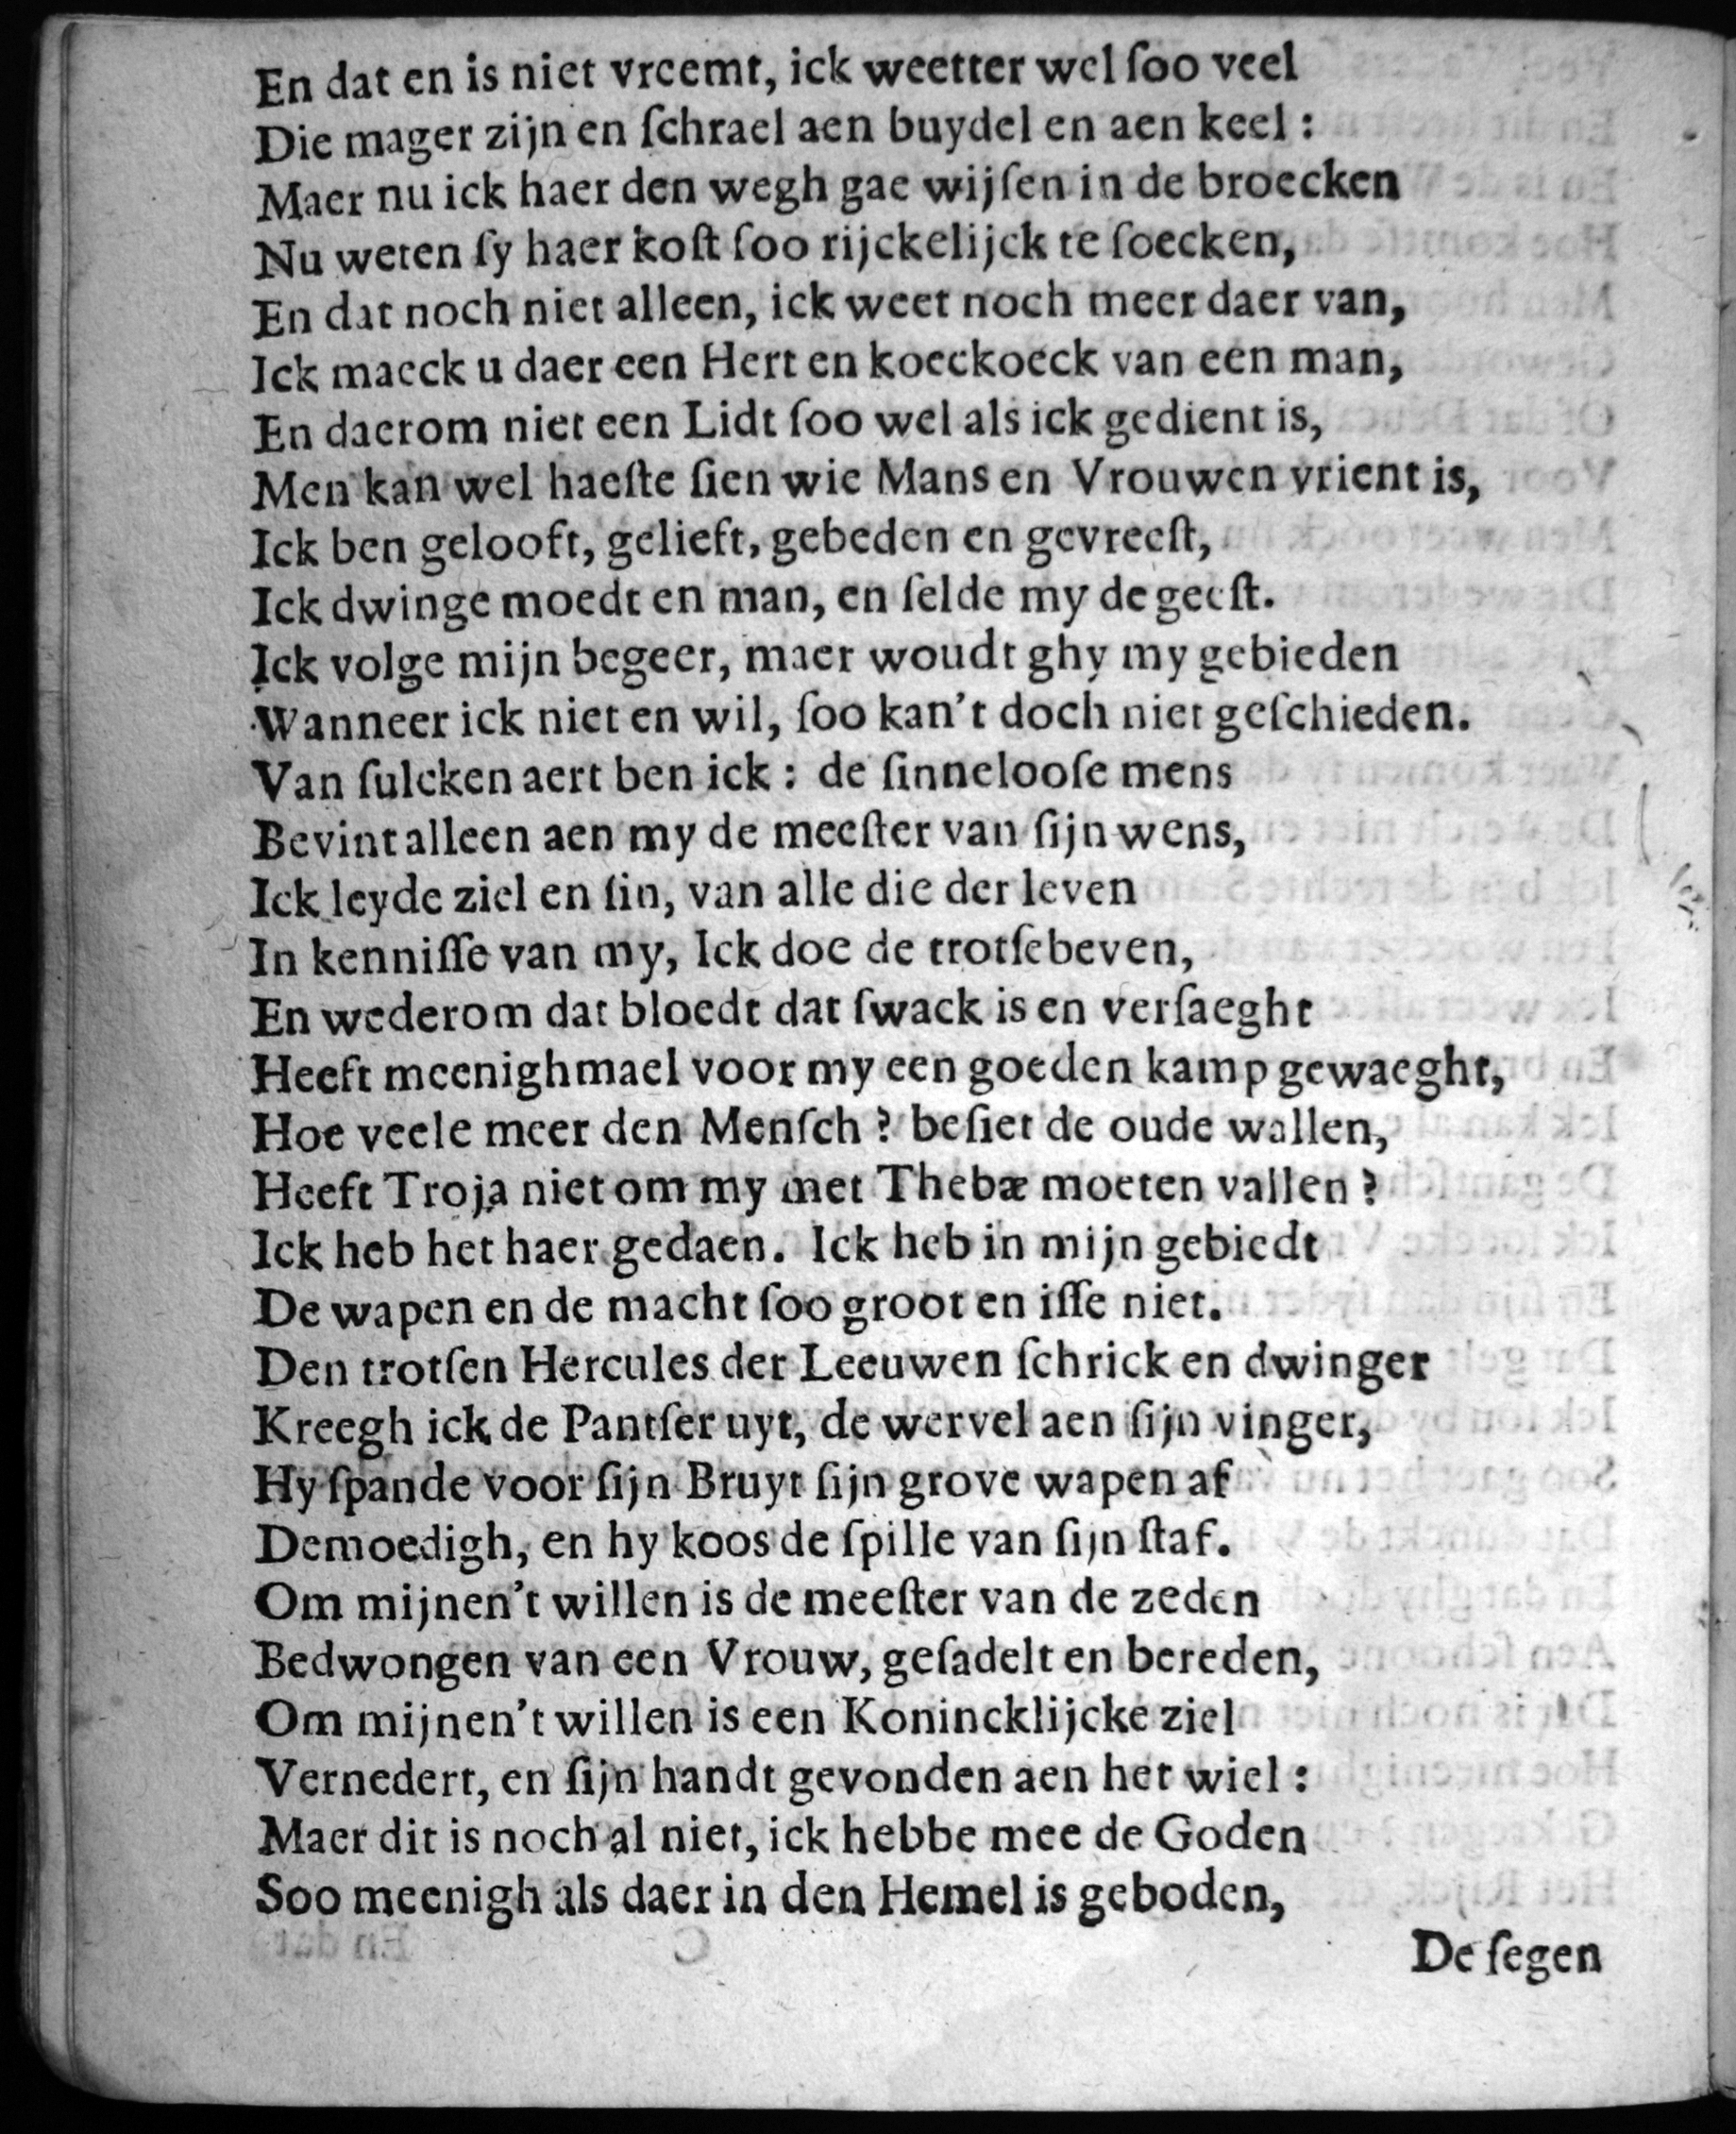 En dat en is niet vreemt, ick weetter wel ſoo veel
Die mager zijn en ſchrael aen buydel en aen keel :
Maer nu ick haer den wegh gae wijſen in de broecken
Nu weten ſy haer koſt ſoo rijckelijck te ſoecken,
En dat noch niet alleen, ick weet noch meer daer van,
Ick maeck u daer een Hert en koeckoeck van een man,
En daerom niet een Lidt ſoo wel als ick gedient is,
Men kan wel haeſte ſien wie Mans en Vrouwen vrient is,
Ick ben gelooft, gelieft, gebeden en gevreeſt,
Ick dwinge moedt en man, en ſelde my de geeſt.
Ick volge mijn begeer, maer woudt ghy my gebieden
Wanneer ick niet en wil, ſoo kan't doch niet geſchieden.
Van ſulcken aert ben ick : de ſinnelooſe mens
Bevint alleen aen my de meeſter van ſijn wens,
Ick leyde ziel en ſin, van alle die der leven
In kenniſſe van my, Ick doe de trotſebeven,
En wederom dat bloedt dat ſwack is en verſaeght
Heeft meenighmael voor my een goeden kamp gewaeght,
Hoe veele meer den Menſch ? beſiet de oude wallen,
Heeft Troja niet om my met Thebæ moeten vallen ?
Ick heb het haer gedaen. Ick heb in mijn gebiedt
De wapen en de macht ſoo groot en iſſe niet.
Den trotſen Hercules der Leeuwen ſchrick en dwinger
Kreegh ick de Pantſer uyt, de wervel aen ſijn vinger,
Hy ſpande voor ſijn Bruyt ſijn grove wapen af
Demoedigh, en hy koos de ſpille van ſijn ſtaf.
Om mijnen't willen is de meeſter van de zeden
Bedwongen van een Vrouw, geſadelt en bereden,
Om mijnen't willen is een Konincklijcke ziel
Vernedert, en ſijn handt gevonden aen het wiel :
Maer dit is noch al niet, ick hebbe mee de Goden
Soo meenigh als daer in den Hemel is geboden,
De ſegen